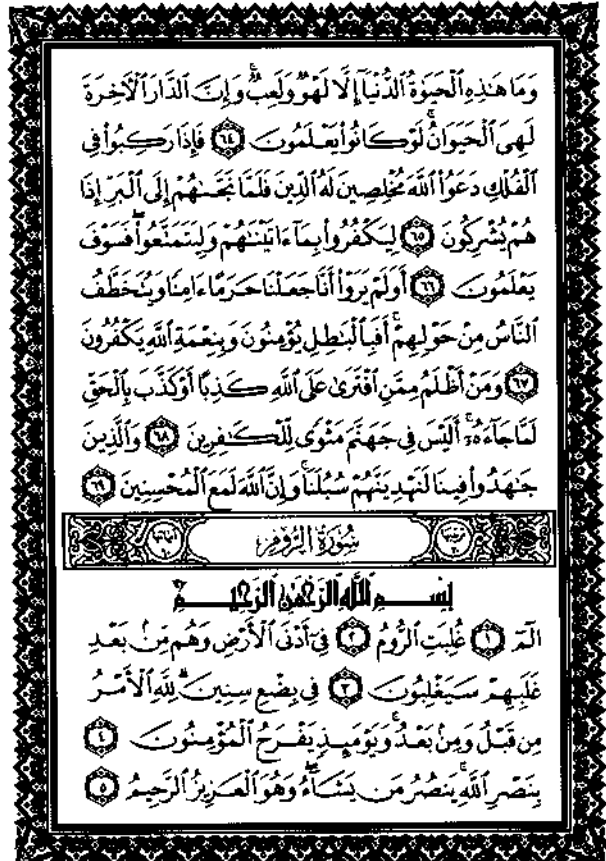 وَمَا هَٰذِهِ ٱلْحَيَوٰةُ ٱلدُّنْيَآ إِلَّا لَهْوٌ وَلَعِبٌ ۚ وَإِنَّ ٱلدَّارَ ٱلْأَخِرَةَ
لَهِىَ ٱلْحَيَوَانُ ۚ لَوْ كَانُوا۟ يَعْلَمُونَ ٦٤ فَإِذَا رَكِبُوا۟ فِى
ٱلْفُلْكِ دَعَوُا۟ ٱللَّهَ مُخْلِصِينَ لَهُ ٱلدِّينَ فَلَمَّا نَجَّىٰهُمْ إِلَى ٱلْبَرِّ إِذَا
هُمْ يُشْرِكُونَ ٦٥ لِيَكْفُرُوا۟ بِمَآ ءَاتَيْنَٰهُمْ وَلِيَتَمَتَّعُوا۟ ۖ فَسَوْفَ
يَعْلَمُونَ ٦٦ أَوَلَمْ يَرَوْا۟ أَنَّا جَعَلْنَا حَرَمًا ءَامِنًا وَيُتَخَطَّفُ
ٱلنَّاسُ مِنْ حَوْلِهِمْ ۚ أَفَبِٱلْبَٰطِلِ يُؤْمِنُونَ وَبِنِعْمَةِ ٱللَّهِ يَكْفُرُونَ
٦٧ وَمَنْ أَظْلَمُ مِمَّنِ ٱفْتَرَىٰ عَلَى ٱللَّهِ كَذِبًا أَوْ كَذَّبَ بِٱلْحَقِّ
لَمَّا جَآءَهُۥٓ ۚ أَلَيْسَ فِى جَهَنَّمَ مَثْوًى لِّلْكَٰفِرِينَ ٦٨ وَٱلَّذِينَ
جَٰهَدُوا۟ فِينَا لَنَهْدِيَنَّهُمْ سُبُلَنَا ۚ وَإِنَّ ٱللَّهَ لَمَعَ ٱلْمُحْسِنِينَ ٦٩
ترتيبها ٣٠ سُورَةُ ٱلرُّومِ آياتها ٦٠
بِسْمِ ٱللَّهِ ٱلرَّحْمَٰنِ ٱلرَّحِيمِ
الٓمٓ ١ غُلِبَتِ ٱلرُّومُ ٢ فِىٓ أَدْنَى ٱلْأَرْضِ وَهُم مِّنۢ بَعْدِ
غَلَبِهِمْ سَيَغْلِبُونَ ٣ فِى بِضْعِ سِنِينَ ۗ لِلَّهِ ٱلْأَمْرُ
مِن قَبْلُ وَمِنۢ بَعْدُ ۚ وَيَوْمَئِذٍ يَفْرَحُ ٱلْمُؤْمِنُونَ ٤
بِنَصْرِ ٱللَّهِ ۚ يَنصُرُ مَن يَشَآءُ ۖ وَهُوَ ٱلْعَزِيزُ ٱلرَّحِيمُ ٥